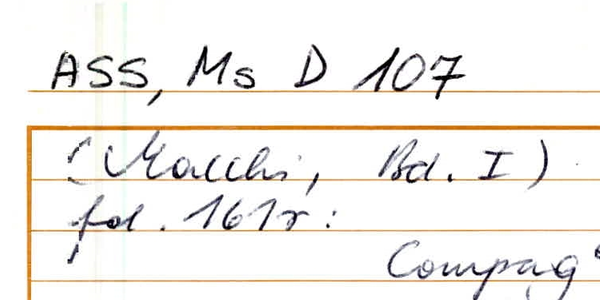 ASS, Ms D 107
(Macchi, Bd. I)
fol. 161r:
Compag